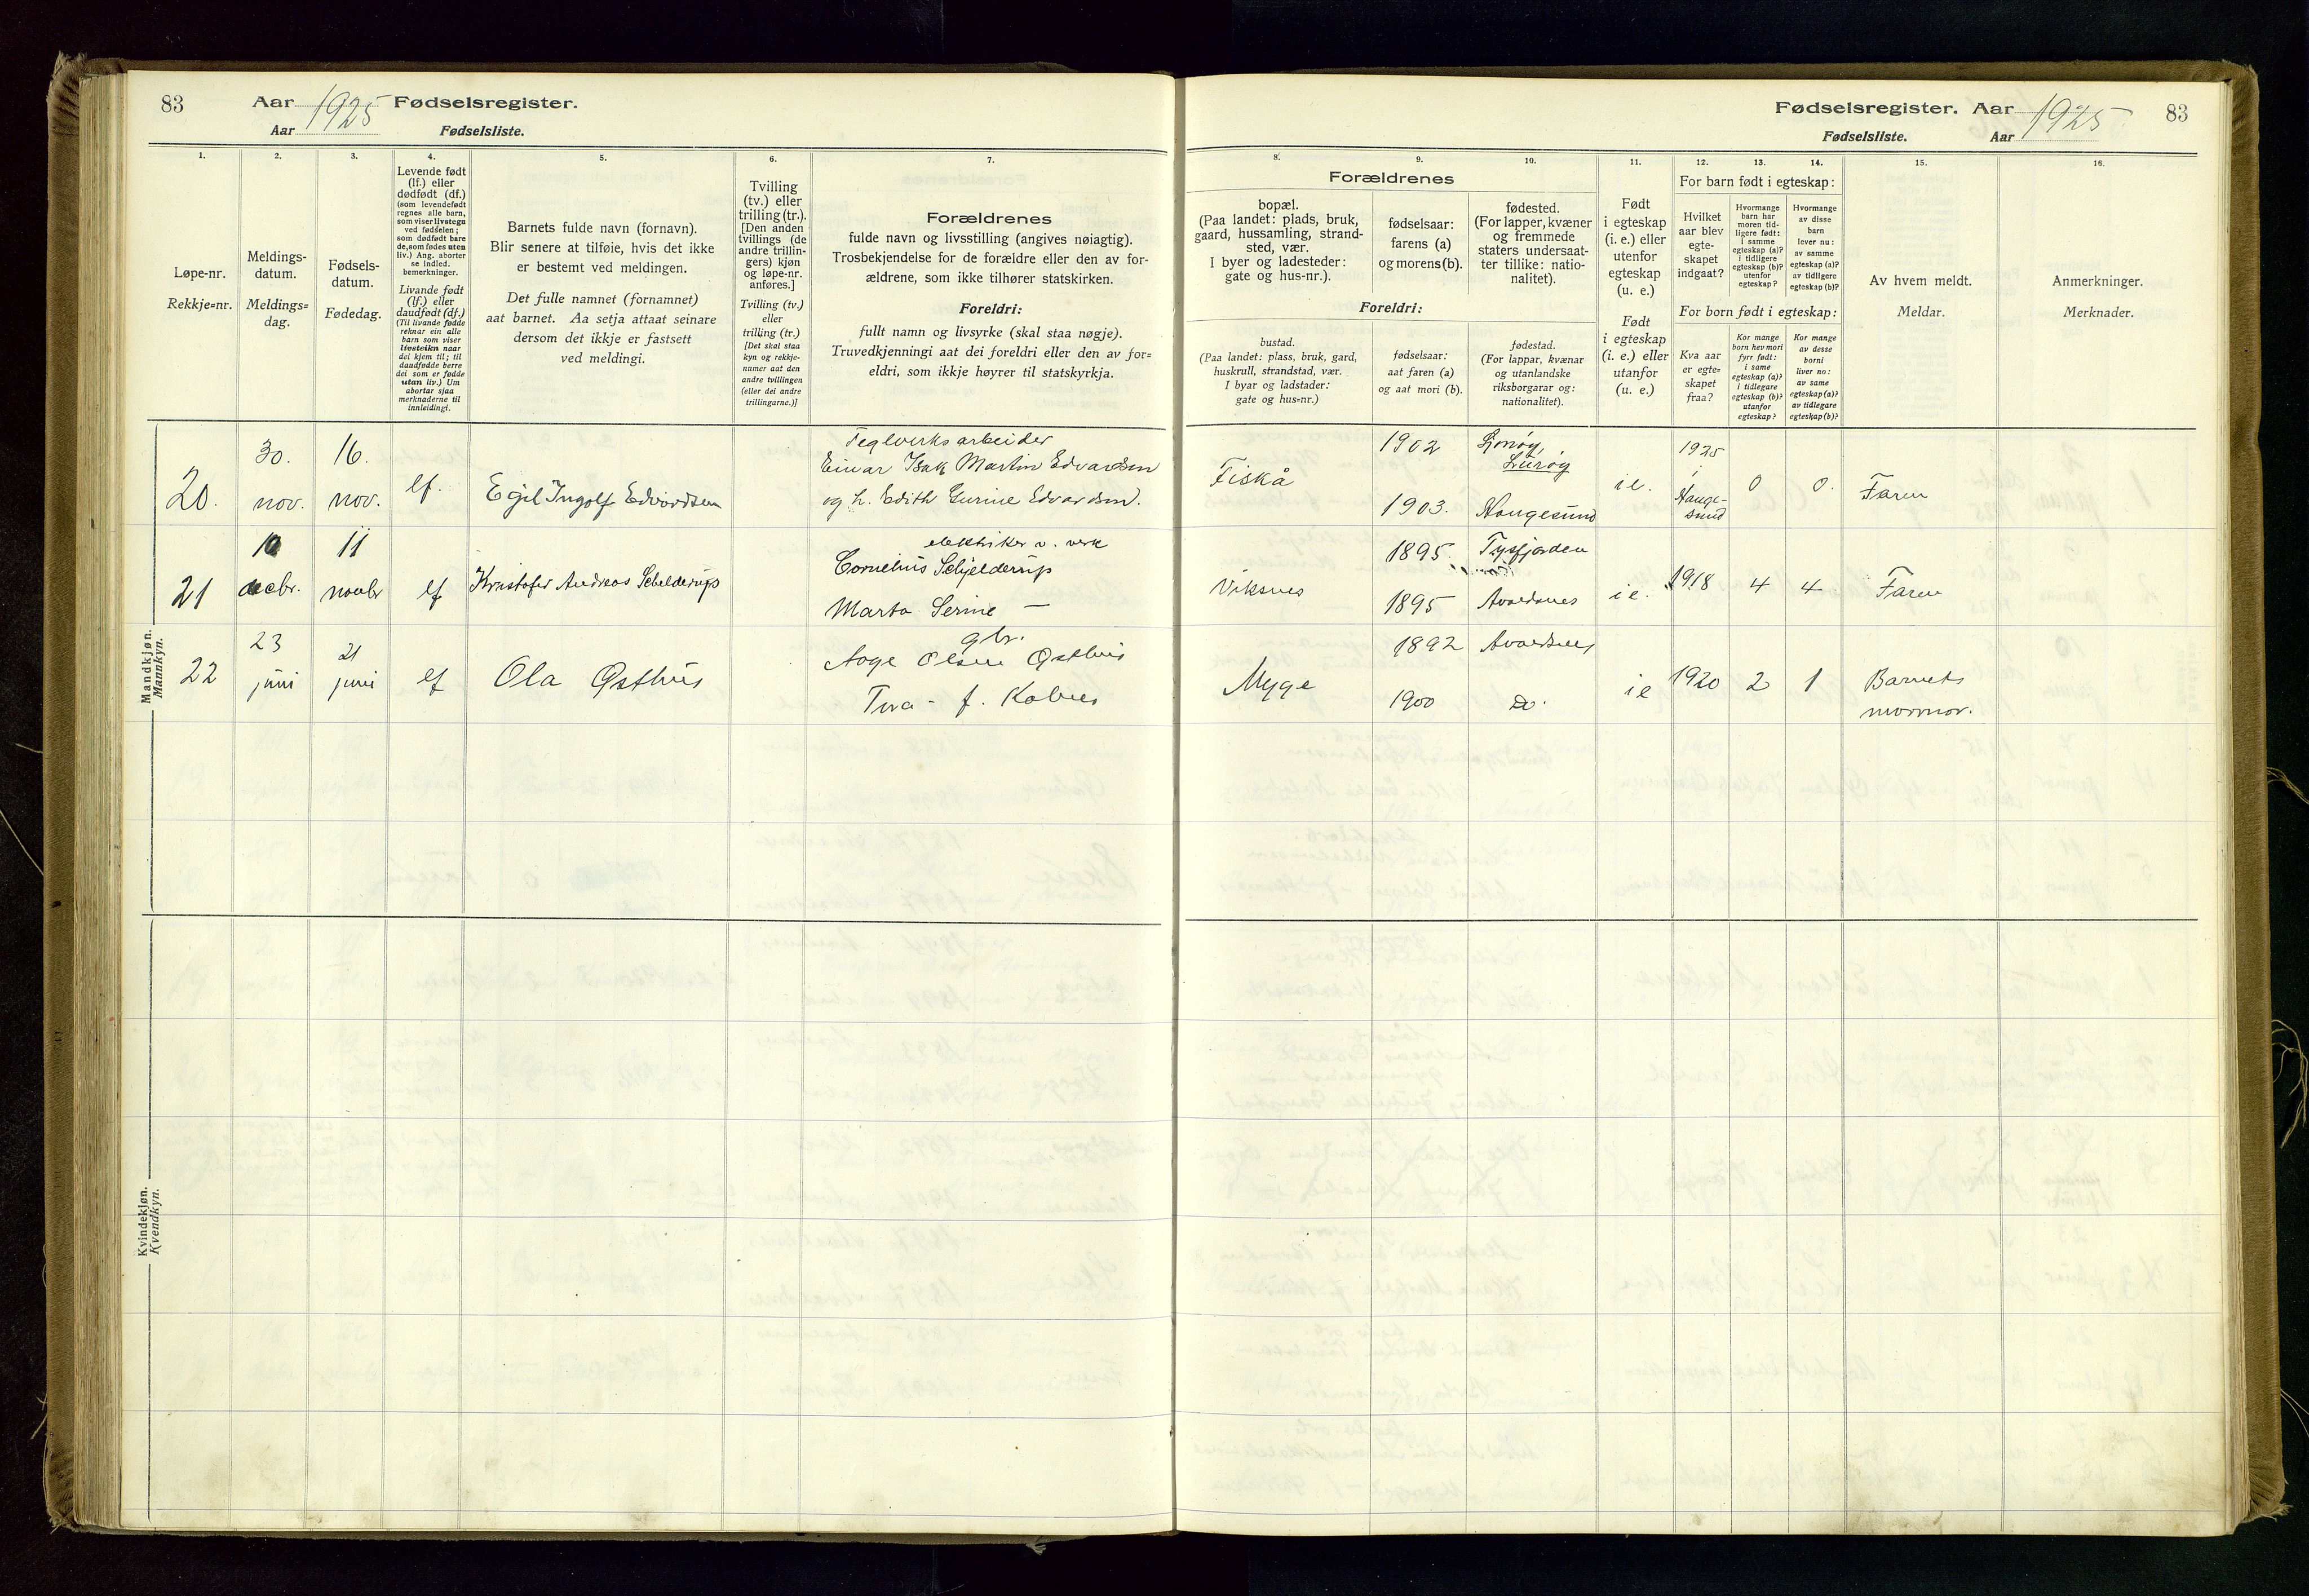 83 Aar 1925 Fødselsregister.
Aar Fødselsliste.
1. 2. 3. 4. 5. 6. 7.
Løpe-nr.
Rekkje=nr.
Meldings-
datum.
Meldings=
dag.
Fødsels-
datum.
Fødedag.
Levende født
(lf.) eller
dødfødt (df.)
(som levendefødt
regnes alle barn,
som viser livstegn
ved fødselen;
som dødfødt bare
de, som fødes uten
liv.) Ang. aborter
se indled.
bemerkninger.
Livande født
(lf.) eller
daudfødt (df.)
(Til livande fødde
reknar ein alle
barn som viser
livsteikn naar
dei kjem til; til
daudfødde berre
dei som er fødde
utan liv.) Um
abortar sjaa
merknaderne til
innleidingi.
Barnets fulde navn (fornavn).
Blir senere at tilføie, hvis det ikke
er bestemt ved meldingen.
Det fulle namnet (fornamnet)
aat barnet. Aa setja attaat seinare
dersom det ikkje er fastsett
ved meldingi.
Tvilling
(tv.) eller
trilling (tr.).
[Den anden
tvillings (de
andre trillin-
gers) kjøn
og løpe-nr.
anføres.]
Tvilling (tv.)
eller
trilling (tr.)
[Det skal staa
kyn og rekkje-
numer aat den
andre tvillingen
(eller dei andre
trillingarne.)]
Forældrenes
fulde navn og livsstilling (angives nøiagtig).
Trosbekjendelse for de forældre eller den av for-
ældrene, som ikke tilhører statskirken.
Foreldri:
fullt namn og livsyrke (skal staa nøgje).
Truvedkjenningi aat dei foreldri eller den av for=
eldri, som ikkje høyrer til statskyrkja.
Mandkjøn.
Mannkyn.
20. 30. nov. 16. nov. lf. Egil Ingolf Edvardsen
Teglverksarbeider
Einar Isak Martin Edvardsen
og h. Edith Gurine Edvardsen.
21 10 decbr. 11 novbr lf Kristofer Andreas Schelderup
elektriker v. verk
Cornelius Schjelderup
Marta Serine —
22 23 juni 21 juni lf Ola Østhus
gbr.
Aage Olsen Østhus
Tera - f. Kolnes
Kvindekjøn.
Kvendkyn.
Fødselsregister. Aar 1925 83
Fødselsliste. Aar
8. 9. 10. 11. 12. 13. 14. 15. 16.
Forældrenes
bopæl.
(Paa landet: plads, bruk,
gaard, hussamling, strand-
sted, vær.
I byer og ladesteder:
gate og hus-nr.).
fødselsaar:
farens (a)
og morens (b).
fødested.
(For lapper, kvæner
og fremmede
staters undersaat-
ter tillike: natio-
nalitet).
Foreldri:
bustad.
(Paa landet: plass, bruk, gard,
huskrull, strandstad, vær.
I byar og ladstader:
gate og hus=nr.)
fødselsaar:
aat faren (a)
og aat mori (b).
fødestad.
(For lappar, kvænar
og utanlandske
riksborgarar og:
nationalitet).
Født
i egteskap
(i. e.) eller
utenfor
egteskap
(u. e.)
Født
i egteskap
(i. e.) eller
utanfor
(u. e.)
For barn født i egteskap:
Hvilket
aar blev
egte-
skapet
indgaat?
Hvormange
barn har
moren tid-
ligere født:
i samme
egteskap (a)?
i tidligere
egteskap (b)?
utenfor
egteskap?
Hvormange
av disse
barn
lever nu:
av samme
egteskap (a)?
av tidligere
egteskap (b)?
For born født i egteskap:
Kva aar
er egte=
skapet
fraa?
Kor mange
born hev mori
fyrr født:
i same
egteskap (a)?
i tidlegare
egteskap (b)?
utanfor
egteskap?
Kor mange
av desse
borni
liver no:
av same
egteskap (a)?
av tidlegare
egteskap (b)?
Av hvem meldt.
Meldar.
Anmerkninger.
Merknader.
Fiskå 1902 Lurøy
1903. Haugesund
i e. 1925 i Hauge-
sund 0 0. Faren
Viksnes 1895. Tysfjorden
1895 Avaldsnes
i e. 1918 4 4 Faren
Myge 1892 Avaldsnes
1900 do.
i e 1920 2 1 Barnets
mormor.